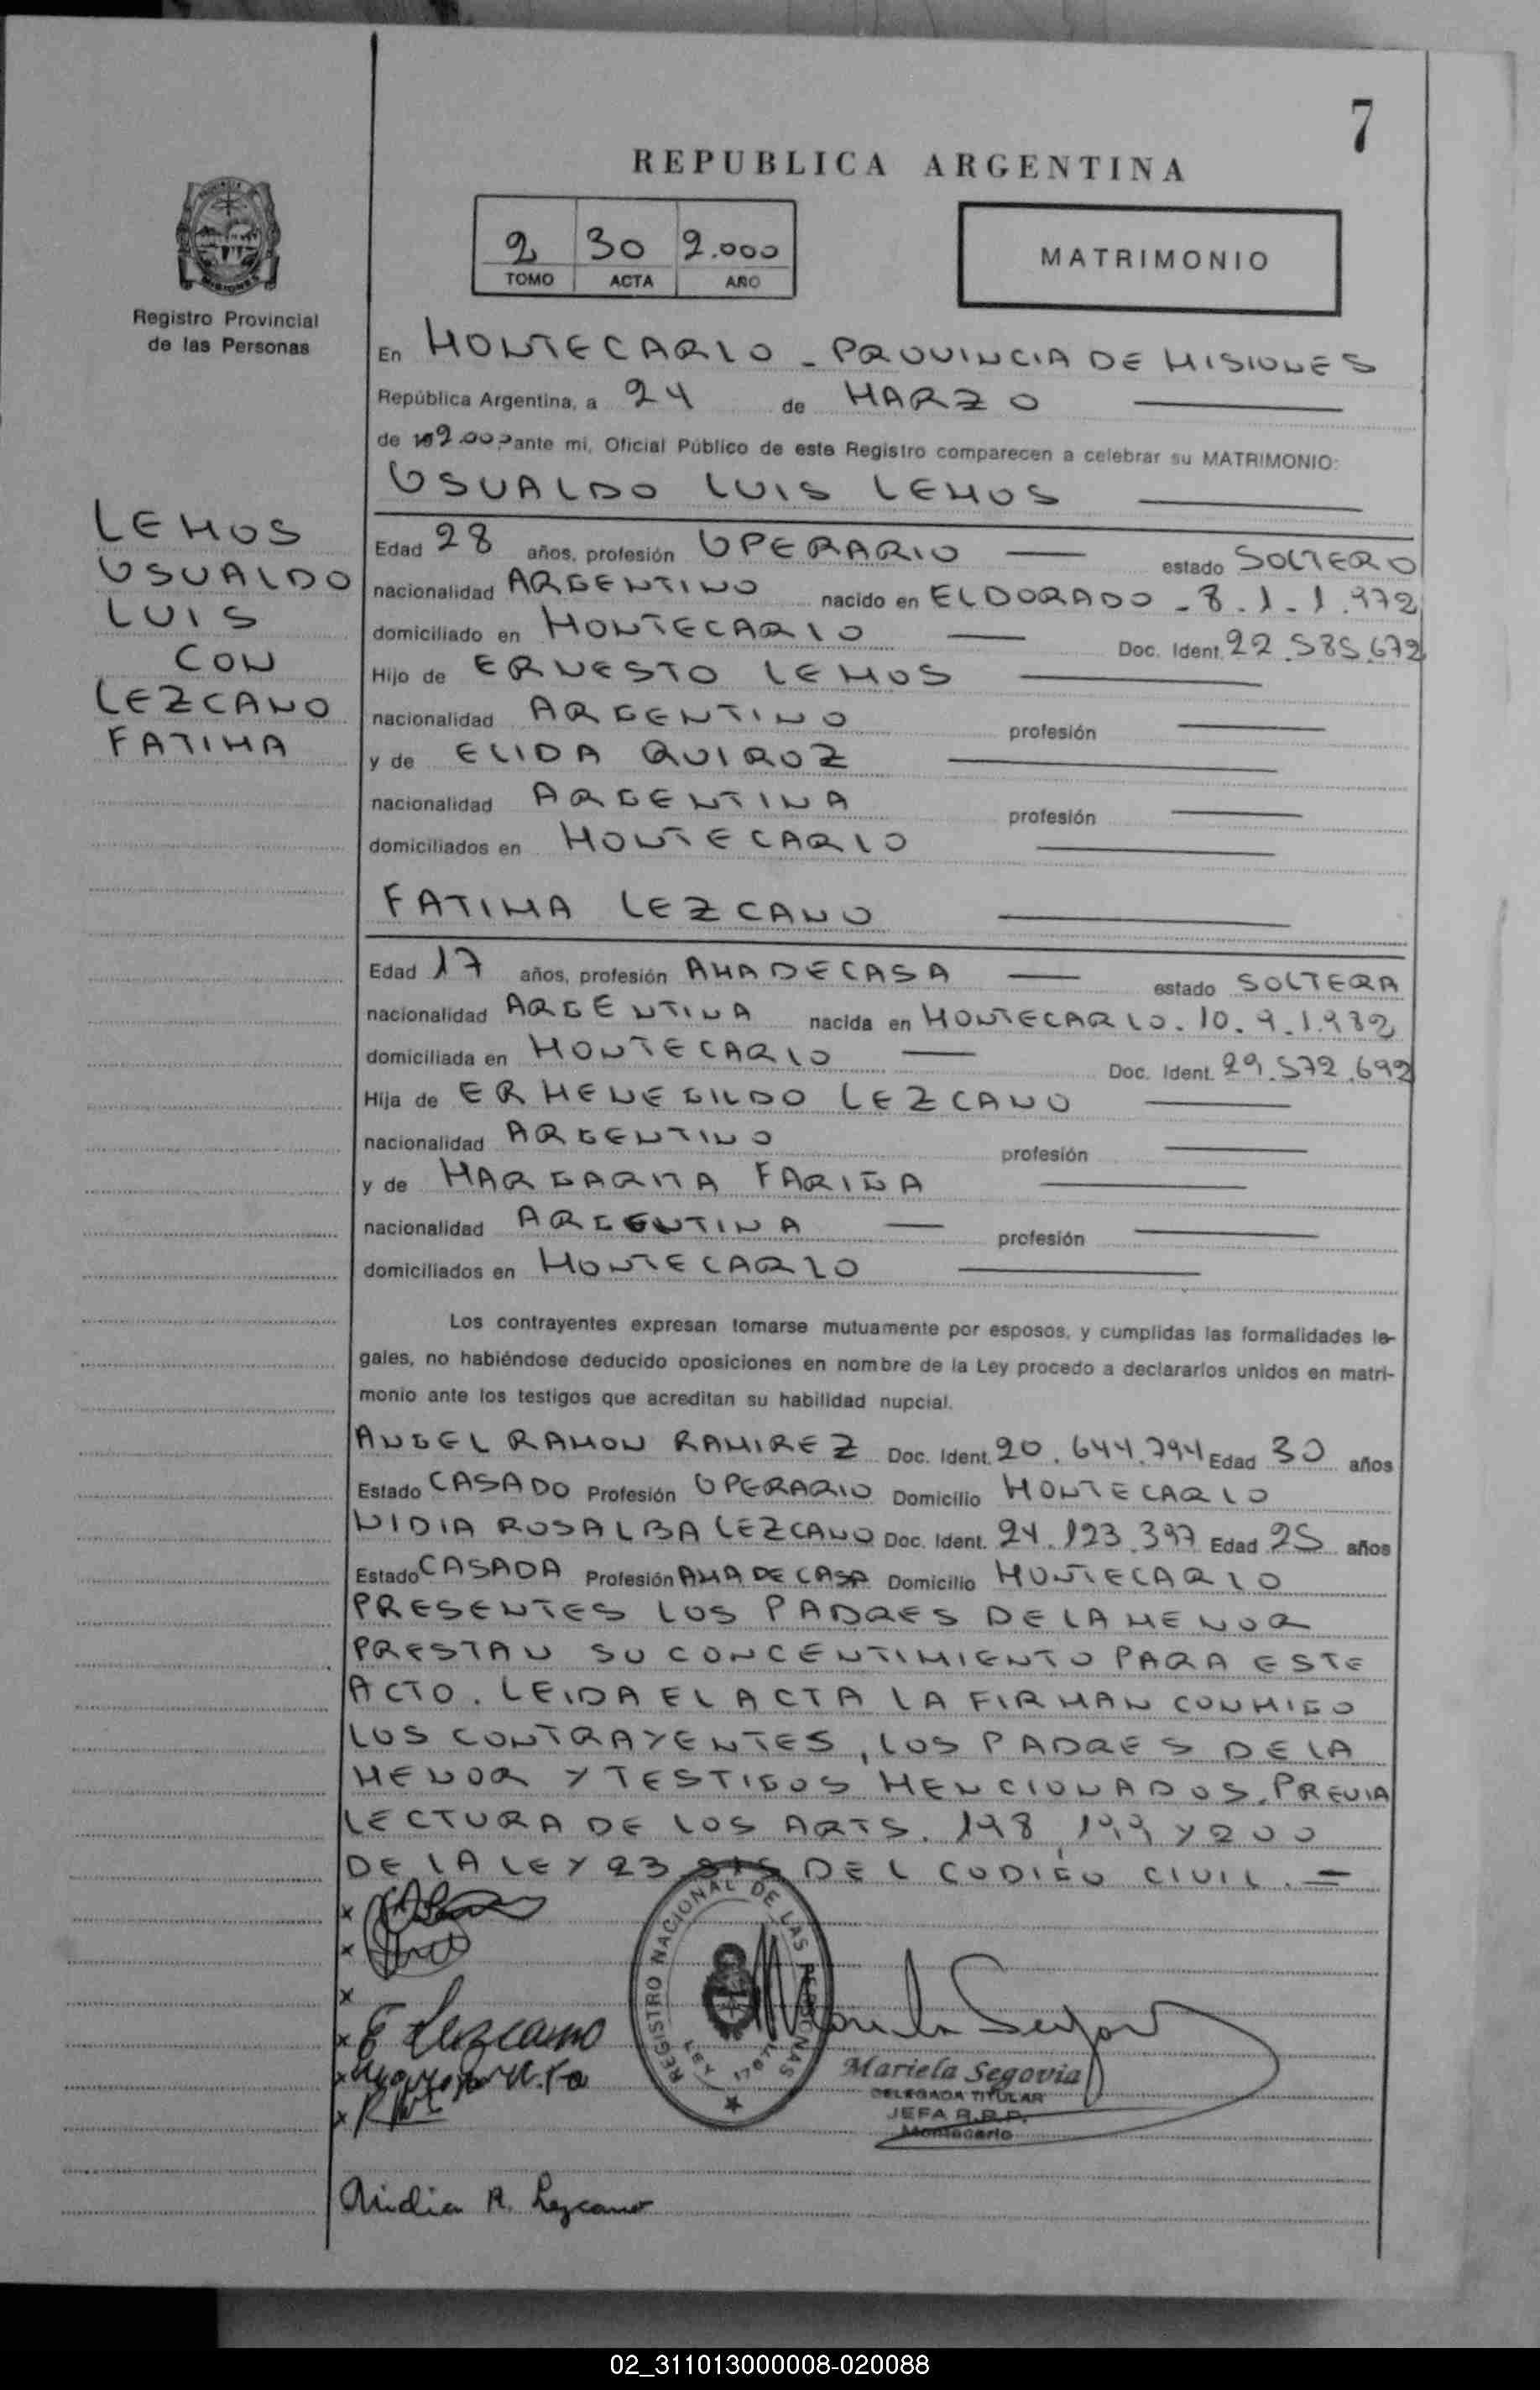 7
REPUBLICA ARGENTINA
2 30 2.000
TOMO ACTA AÑO
MATRIMONIO
Registro Provincial
de las Personas
En MONTECARLO - PROVINCIA DE MISIONES
República Argentina, a 24 de MARZO
de 2.000 ante mi, Oficial Público de este Registro comparecen a celebrar su MATRIMONIO:
OSVALDO LUIS LEMOS
LEMOS
OSVALDO
LUIS
CON
LEZCANO
FATIMA
Edad 28 años, profesión OPERARIO estado SOLTERO
nacionalidad ARGENTINO nacido en ELDORADO - 8.1-1.972
domiciliado en MONTECARLO Doc. Ident. 22.585.672
Hijo de ERNESTO LEMOS
nacionalidad ARGENTINO profesión
y de ELIDA QUIROZ
nacionalidad ARGENTINA profesión
domiciliados en MONTECARLO
FATIMA LEZCANO
Edad 17 años, profesión AMA DE CASA estado SOLTERA
nacionalidad ARGENTINA nacida en MONTECARLO. 10.9.1.982
domiciliada en MONTECARLO Doc. Ident. 29.572.692
Hija de ERMENEGILDO LEZCANO
nacionalidad ARGENTINO profesión
y de MARGARITA FARIÑA
nacionalidad ARGENTINA profesión
domiciliados en MONTECARLO
Los contrayentes expresan tomarse mutuamente por esposos, y cumplidas las formalidades le-
gales, no habiéndose deducido oposiciones en nombre de la Ley procedo a declararlos unidos en matri-
monio ante los testigos que acreditan su habilidad nupcial.
ANGEL RAMON RAMIREZ Doc. Ident. 20.644.794 Edad 30 años
Estado CASADO Profesión OPERARIO Domicilio MONTECARLO
NIDIA ROSALBA LEZCANO Doc. Ident. 24.123.397 Edad 25 años
Estado CASADA Profesión AMA DE CASA Domicilio MONTECARLO
PRESENTES LOS PADRES DE LA MENOR
PRESTAN SU CONCENTIMIENTO PARA ESTE
ACTO. LEIDA EL ACTA LA FIRMAN CONMIGO
LOS CONTRAYENTES, LOS PADRES DE LA
MENOR Y TESTIGOS MENCIONADOS. PREVIA
LECTURA DE LOS ARTS. 198, 199 Y 200
DE LA LEY 23.515 DEL CODIGO CIVIL. =
x
x
x
x E Lezcano
x
x
REGISTRO NACIONAL DE LAS PERSONAS
LEY 17671
Mariela Segovia
Mariela Segovia
DELEGADA TITULAR
JEFA R.P.P.
Montecarlo
Nidia R. Lezcano
02_311013000008-020088